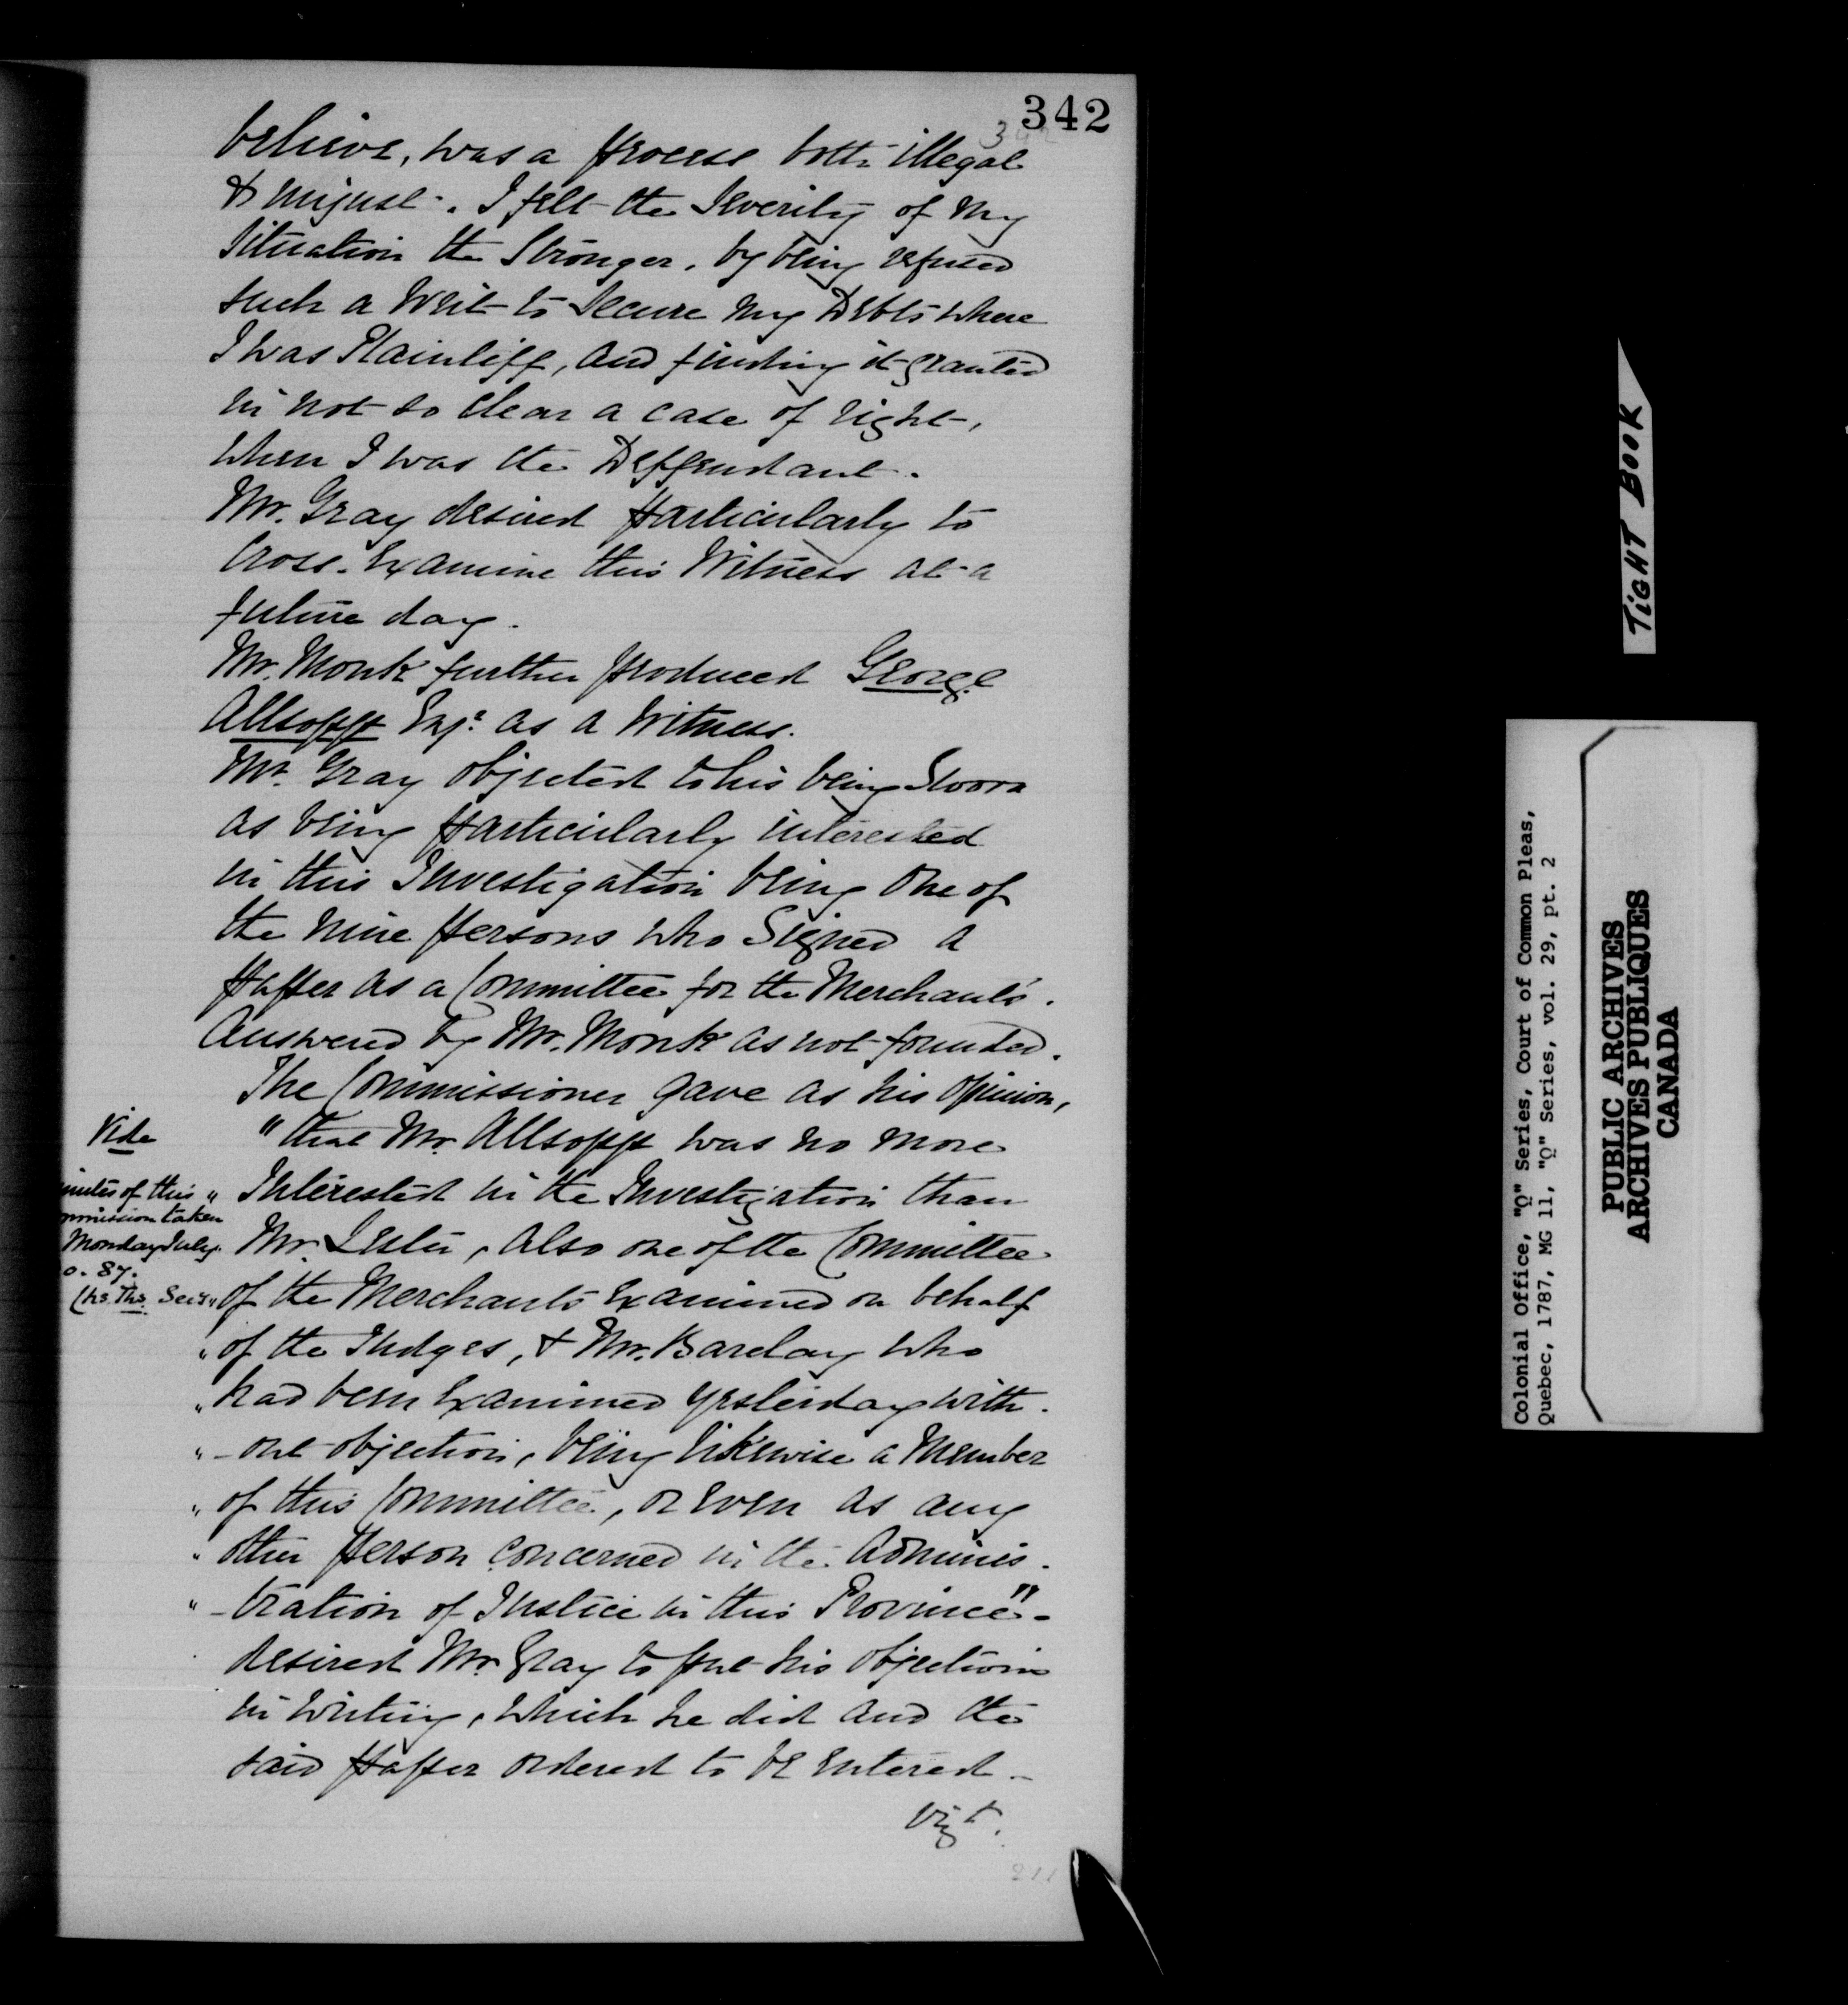 342
342
believe, was a process both illegal
& unjust. I felt the Severity of my
Situation the Stronger, by being refused
such a Writ to Secure my Debts where
I was Plaintiff, and finding it granted
in not so clear a case of right,
when I was the Deffendant.
Mr. Gray desired particularly to
Cross-Examine this Witness at a
future day.
Mr. Monk further produced George
Allsopp Esqr. as a Witness.
Mr. Gray objected to his being Sworn
as being particularly interested
in this Investigation being one of
the nine persons who Signed a
paper as a Committee for the Merchants.
Answered by Mr. Monk as not founded.
The Commissioner gave as his opinion,
"that Mr. Allsopp was no more
" Interested in the Investigation than
Mr. Lester, also one of the Committee
" of the Merchants Examined on behalf
" of the Judges, & Mr. Barclay who
" had been Examined yesterday with-
" -out objection, being likewise a Member
" of this Committee, or even as any
" other person concerned in the Adminis-
" -tration of Justice in this Province" -
desired Mr. Gray to put his objections
in writing, which he did and the
said paper ordered to be entered -
Vizt.
211
Vide
inutes of this
mmission taken
Monday July
0. 87.
(hs. Ths. Secy.
TIGHT BOOK
Colonial Office, "Q" Series, Court of Common Pleas,
Quebec, 1787, MG 11, "Q" Series, vol. 29, pt. 2
PUBLIC ARCHIVES
ARCHIVES PUBLIQUES
CANADA